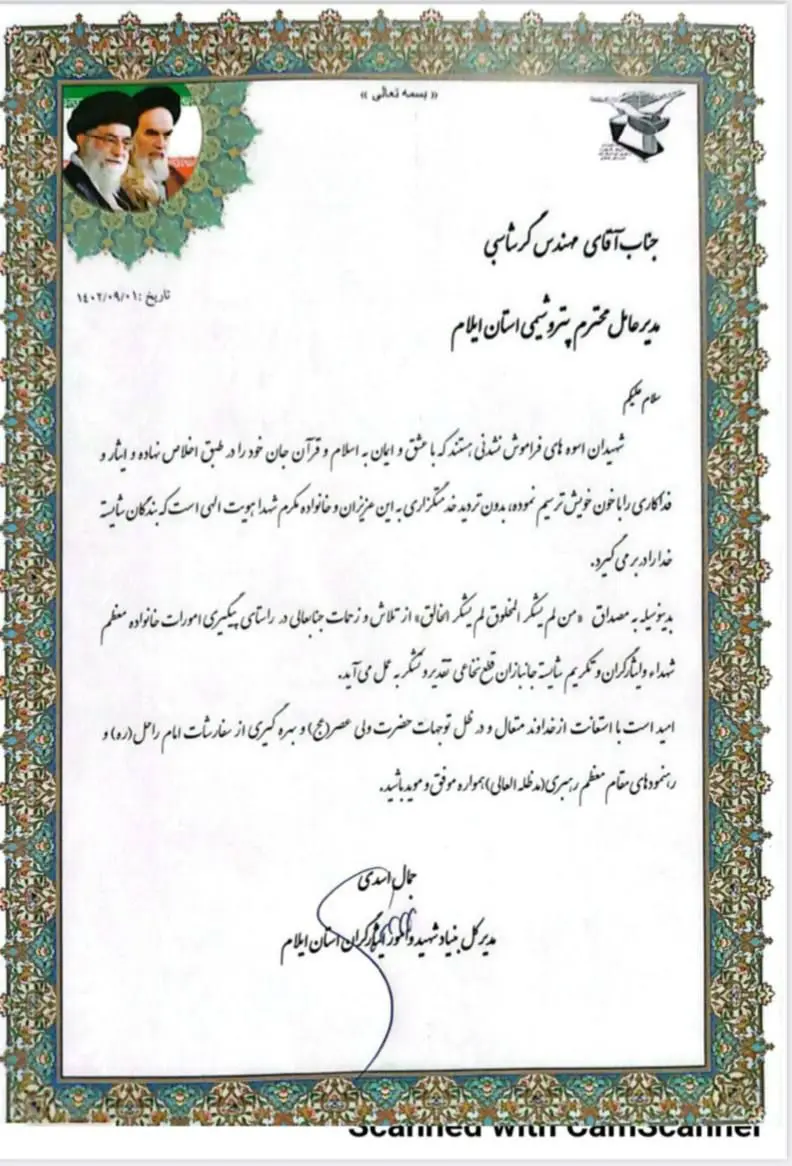 « بسمه تعالی »
جناب آقای مهندس گرشاسبی
تاریخ :۱۴۰۲/۰۹/۰۱
مدیرعامل محترم پتروشیمی استان ایلام
سلام علیکم
شهیدان اسوه های فراموش نشدنی هستند که با عشق و ایمان به اسلام و قرآن جان خود را در طبق اخلاص نهاده و ایثار و
فداکاری را با خون خویش ترسیم نموده، بدون تردید خدمتگزاری به این عزیزان و خانواده مکرم شهدا هویت الهی است که بندگان شایسته
خدا را در بر می گیرد.
بدینوسیله به مصداق «من لم یشکر المخلوق لم یشکر الخالق» از تلاش و زحمات جنابعالی در راستای پیگیری امورات خانواده معظم
شهداء وایثارگران و تکریم شایسته جانبازان قطع نخاعی تقدیر و تشکر به عمل می آید.
امید است با استعانت از خداوند متعال و در ظل توجهات حضرت ولی عصر(عج) و بهره گیری از سفارشات امام راحل(ره) و
رهنمودهای مقام معظم رهبری(مدظله العالی)همواره موفق و موید باشید.
جمال اسدی
مدیرکل بنیاد شهید و امور ایثارگران استان ایلام
Scanned with CamScanner